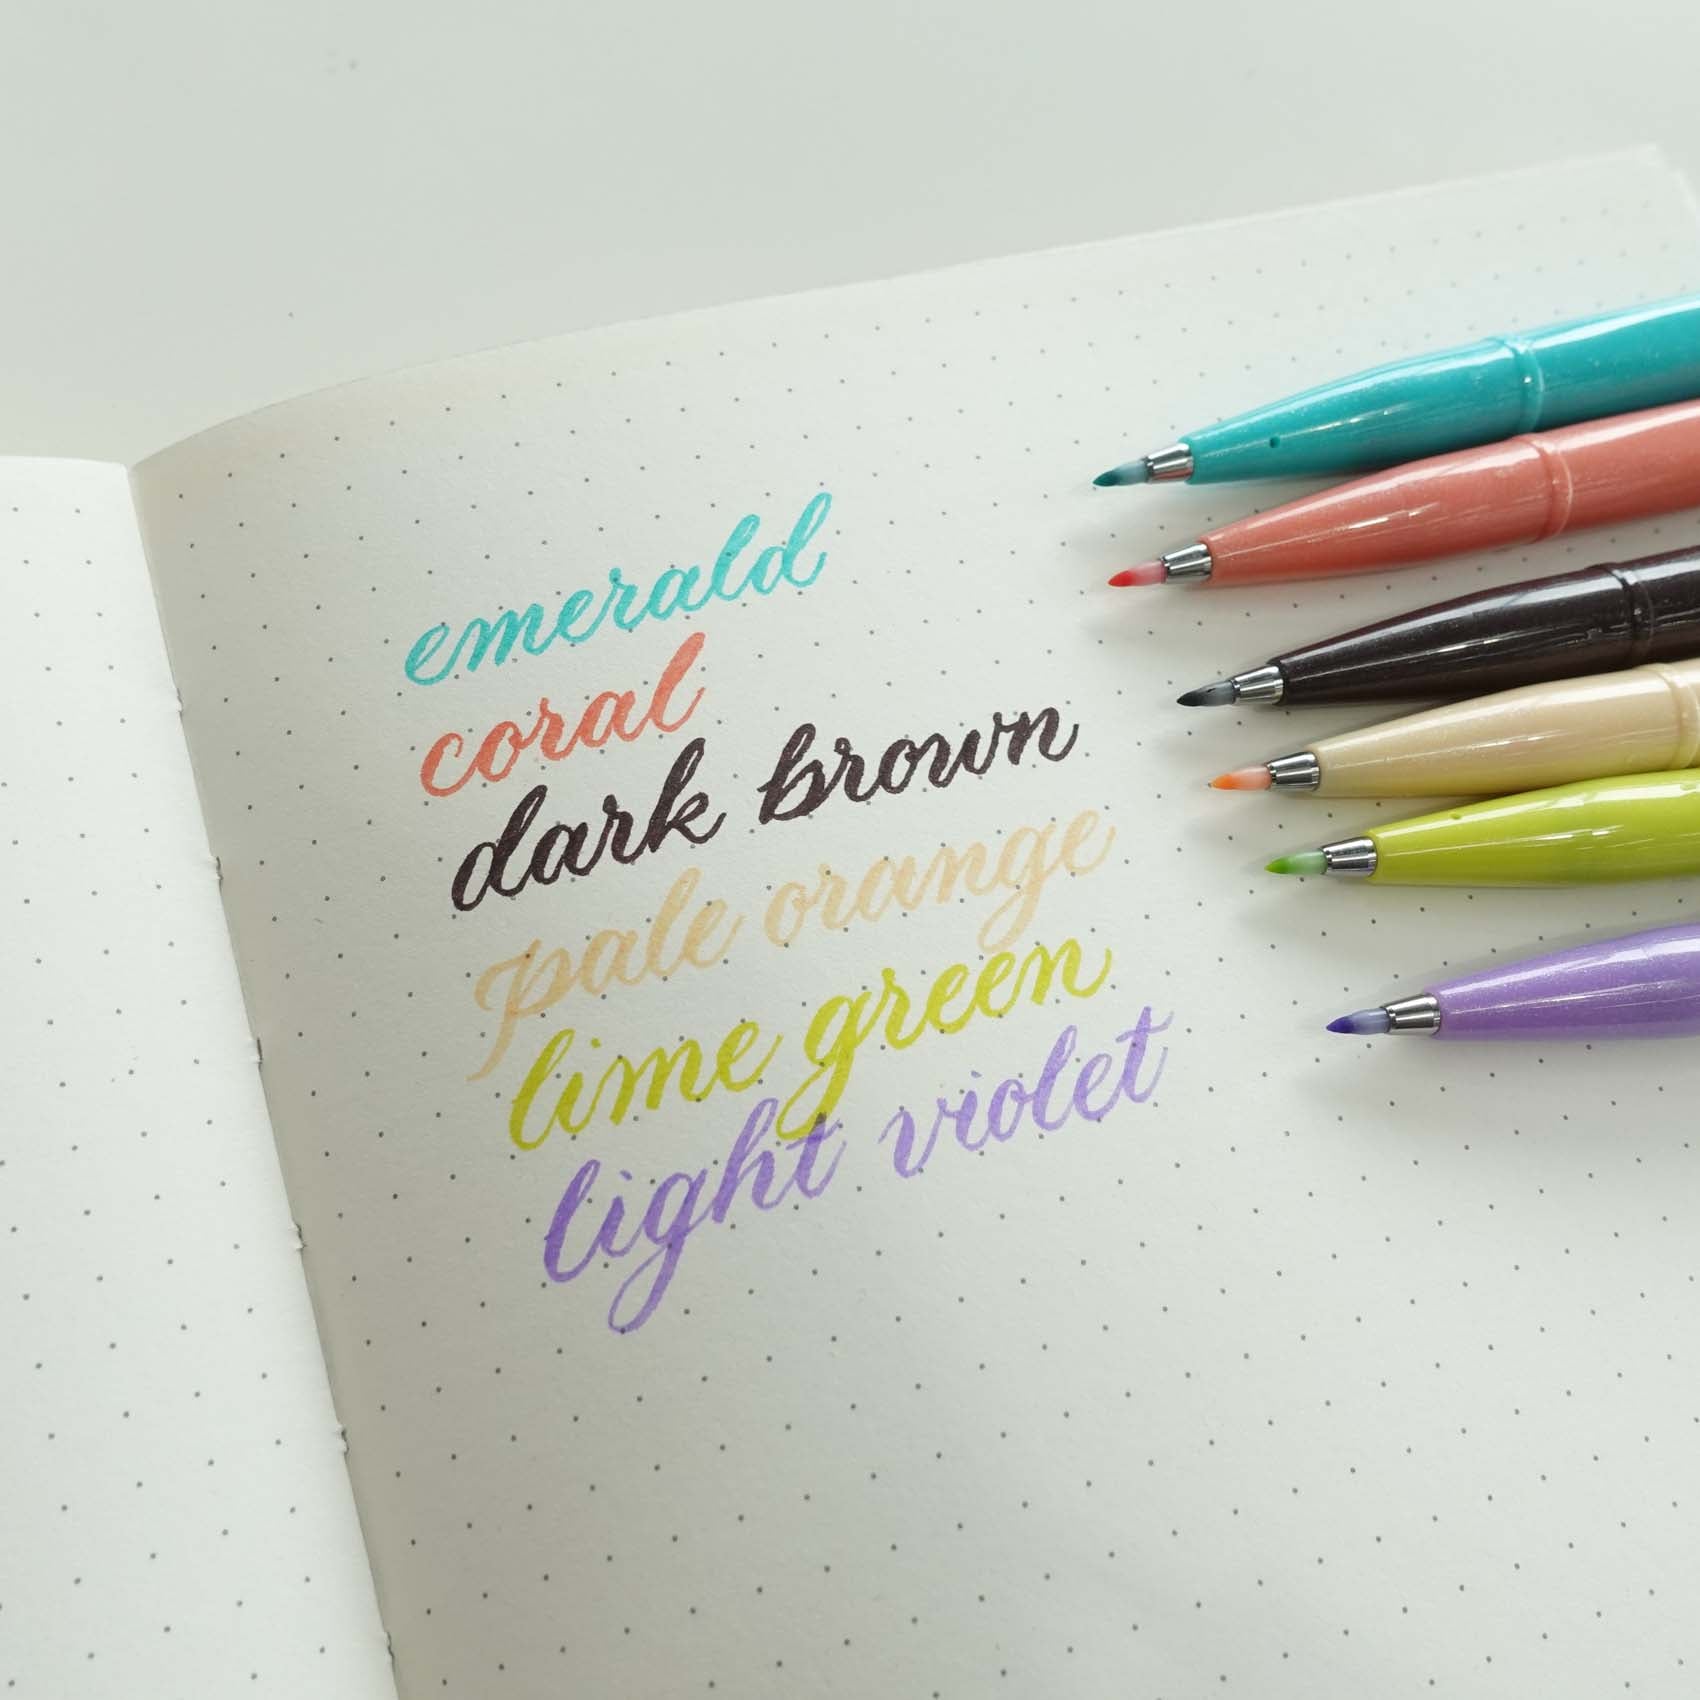 emerald
coral
dark brown
pale orange
lime green
light violet